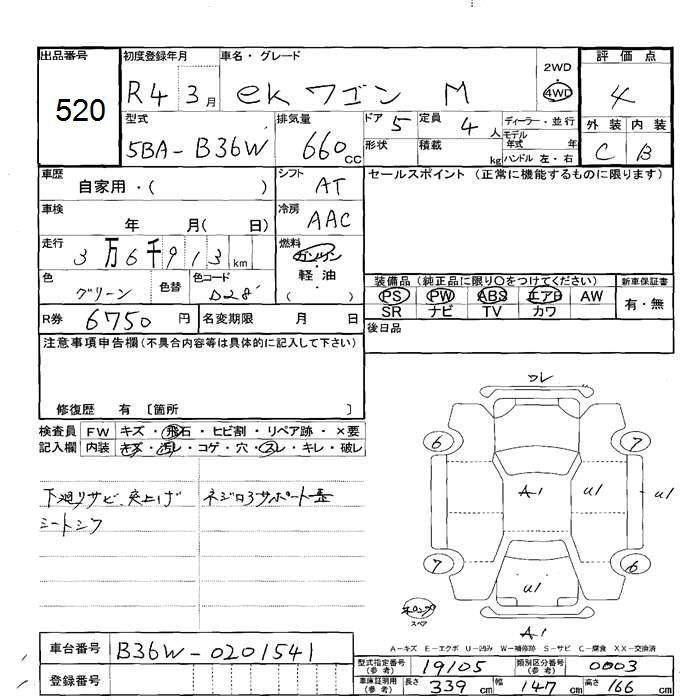 出品番号 初度登録年月 車名・グレード 2WD 評価点
520 R4 3月 ek ワゴン M 4WD 4
型式 排気量 ドア 5 定員 4人 ディーラー・並行 外装 内装
5BA-B36W 660cc 形状 積載 kg モデル年式 年 C B
ハンドル 左・右
車歴 自家用・( ) シフト AT セールスポイント (正常に機能するものに限ります)
車検 年 月( 日) 冷房 AAC
走行 3万6千913km 燃料 ガソリン
軽油
( )
色 グリーン 色替 色コード D28 装備品 (純正品に限り○をつけてください) 新車保証書
PS PW ABS エアB AW 有・無
R券 6750円 名変期限 月 日 SR ナビ TV カワ
注意事項申告欄 (不具合内容等は具体的に記入して下さい) 後日品
修復歴 有 〔箇所 〕
検査員 FW キズ・飛石・ヒビ割・リペア跡・×要
記入欄 内装 キズ・汚レ・コゲ・穴・スレ・キレ・破レ
下廻りサビ、突上げ
シートシワ
ワレ
6 7
A1 U1 U1
7 6
U1
スペア
A1
A-キズ E-エクボ U-凹み W-補修跡 S-サビ C-腐食 XX-交換済
車台番号 B36W-0201541 型式指定番号 (参考) 19105 類別区分番号 (参考) 0003
登録番号 車庫証明用 (参考) 長さ 339cm 幅 147cm 高さ 166cm